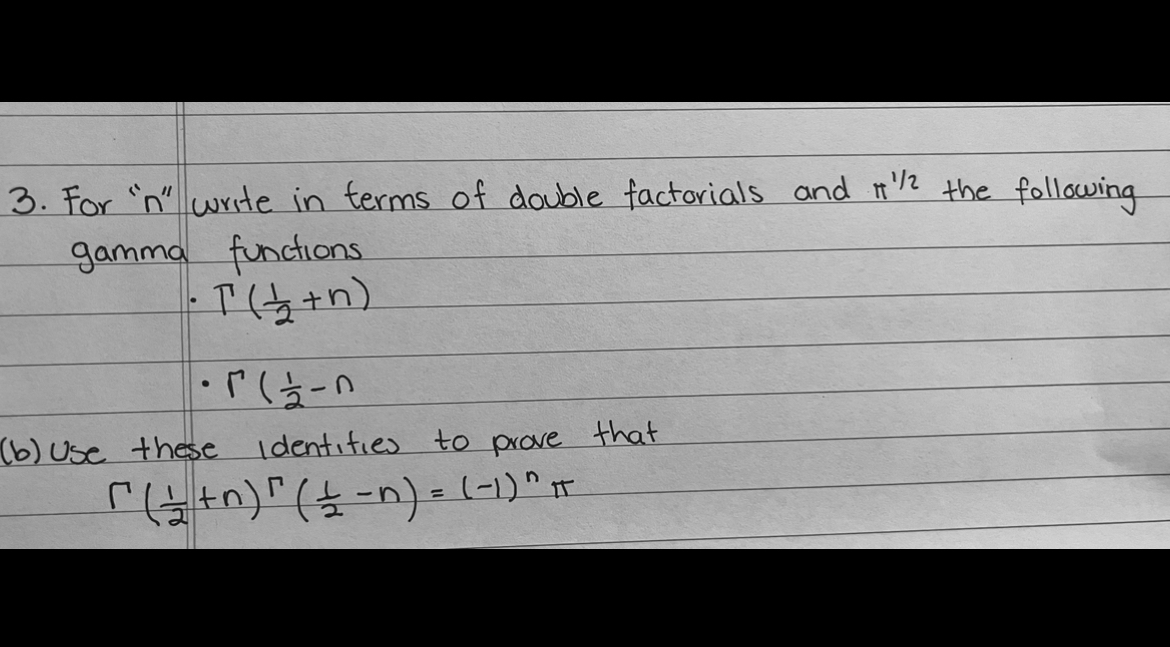 3. For "n" write in terms of double factorials and π^1/2 the following
gamma functions
· Γ(1/2 + n)
· Γ(1/2 - n
(b) Use these identities to prove that
Γ(1/2 + n) Γ(1/2 - n) = (-1)^n π